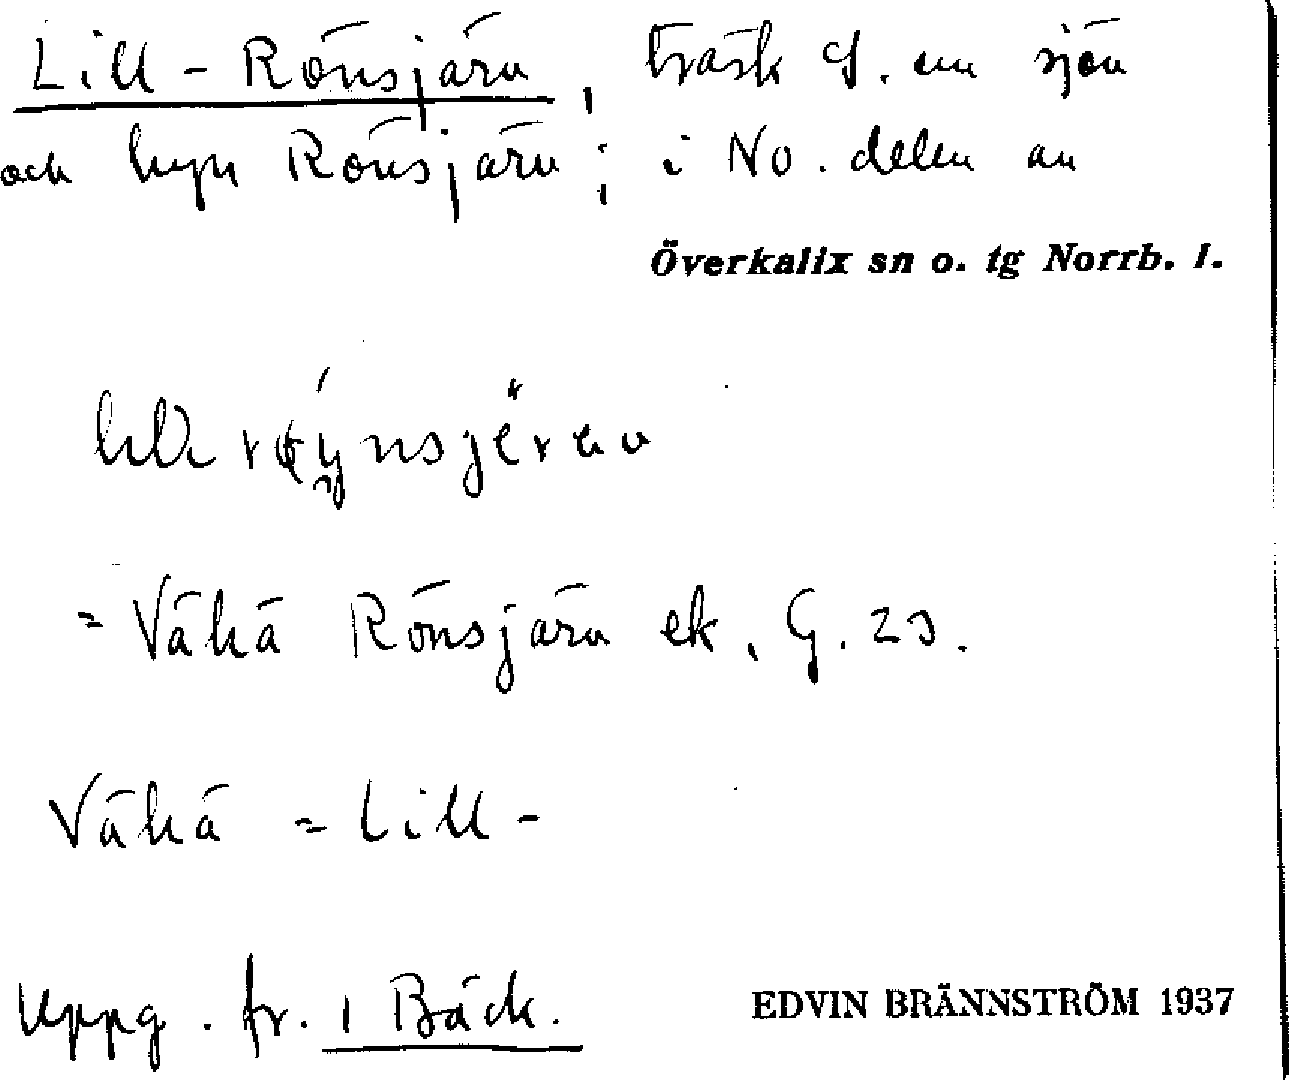 Lill-Rönsjärv, träsk S. om sjön
och byn Rönsjärv; i NO. delen av
Överkalix sn o. tg Norrb. l.
= Vähä Rönsjärv ek. G. 23.
Vähä = Lill-
Uppg. fr. 1 Bäck.
EDVIN BRÄNNSTRÖM 1937